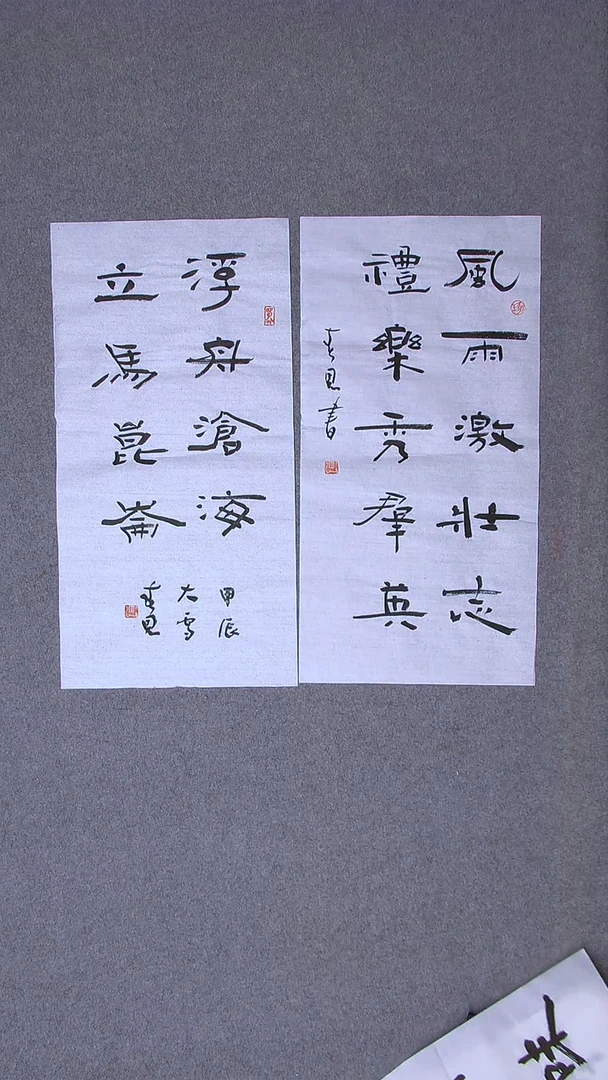 風雨激壯志
禮樂秀羣英
書
浮舟滄海
立馬崑崙
甲辰
大雪